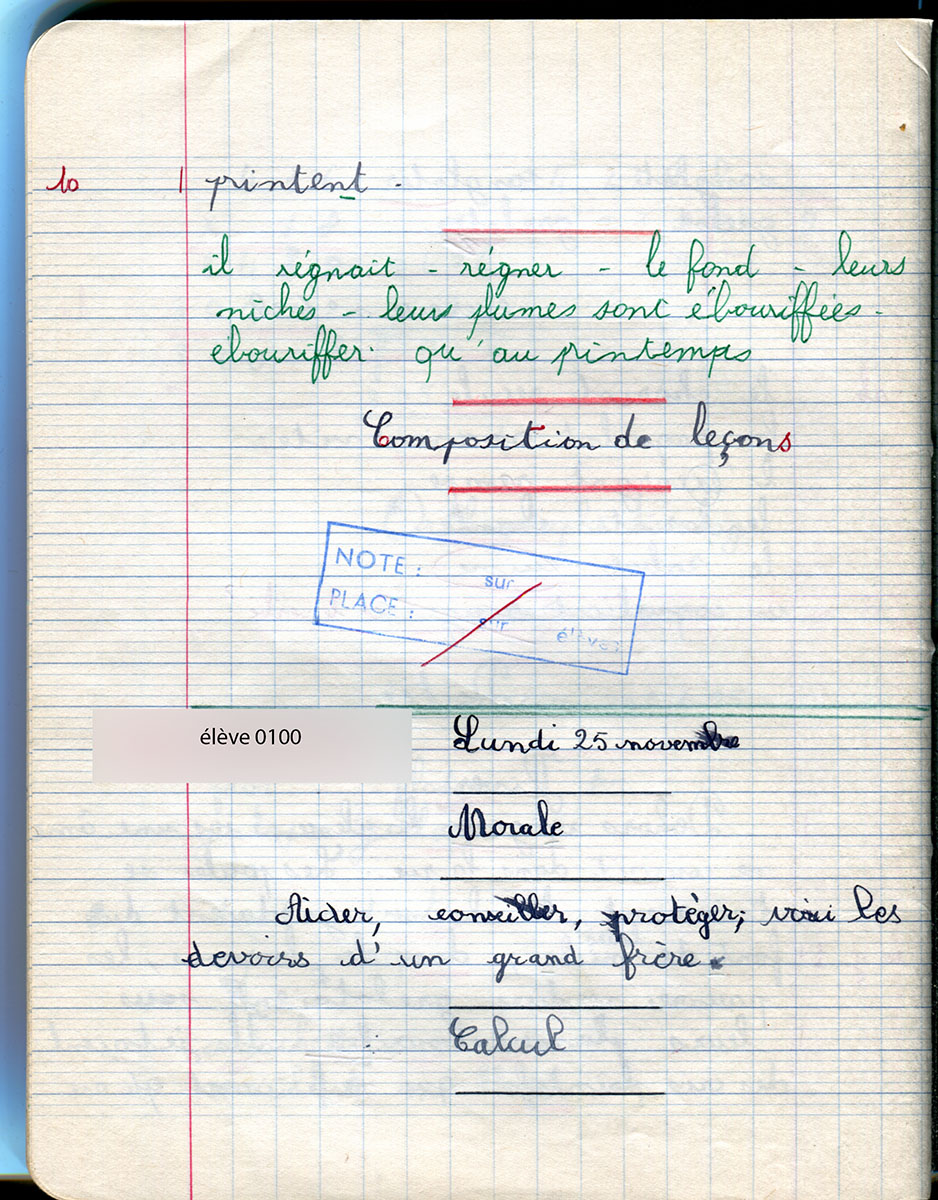 10 | printent.
il régnait - régner - le fond - leurs
niches - leurs plumes sont ébouriffées -
ébouriffer. qu'au printemps
Composition de leçons
NOTE : sur
PLACE : sur élèves
élève 0100
Lundi 25 novembre
Morale
Aider, conseiller, protéger, voici les
devoirs d'un grand frère.
Calcul